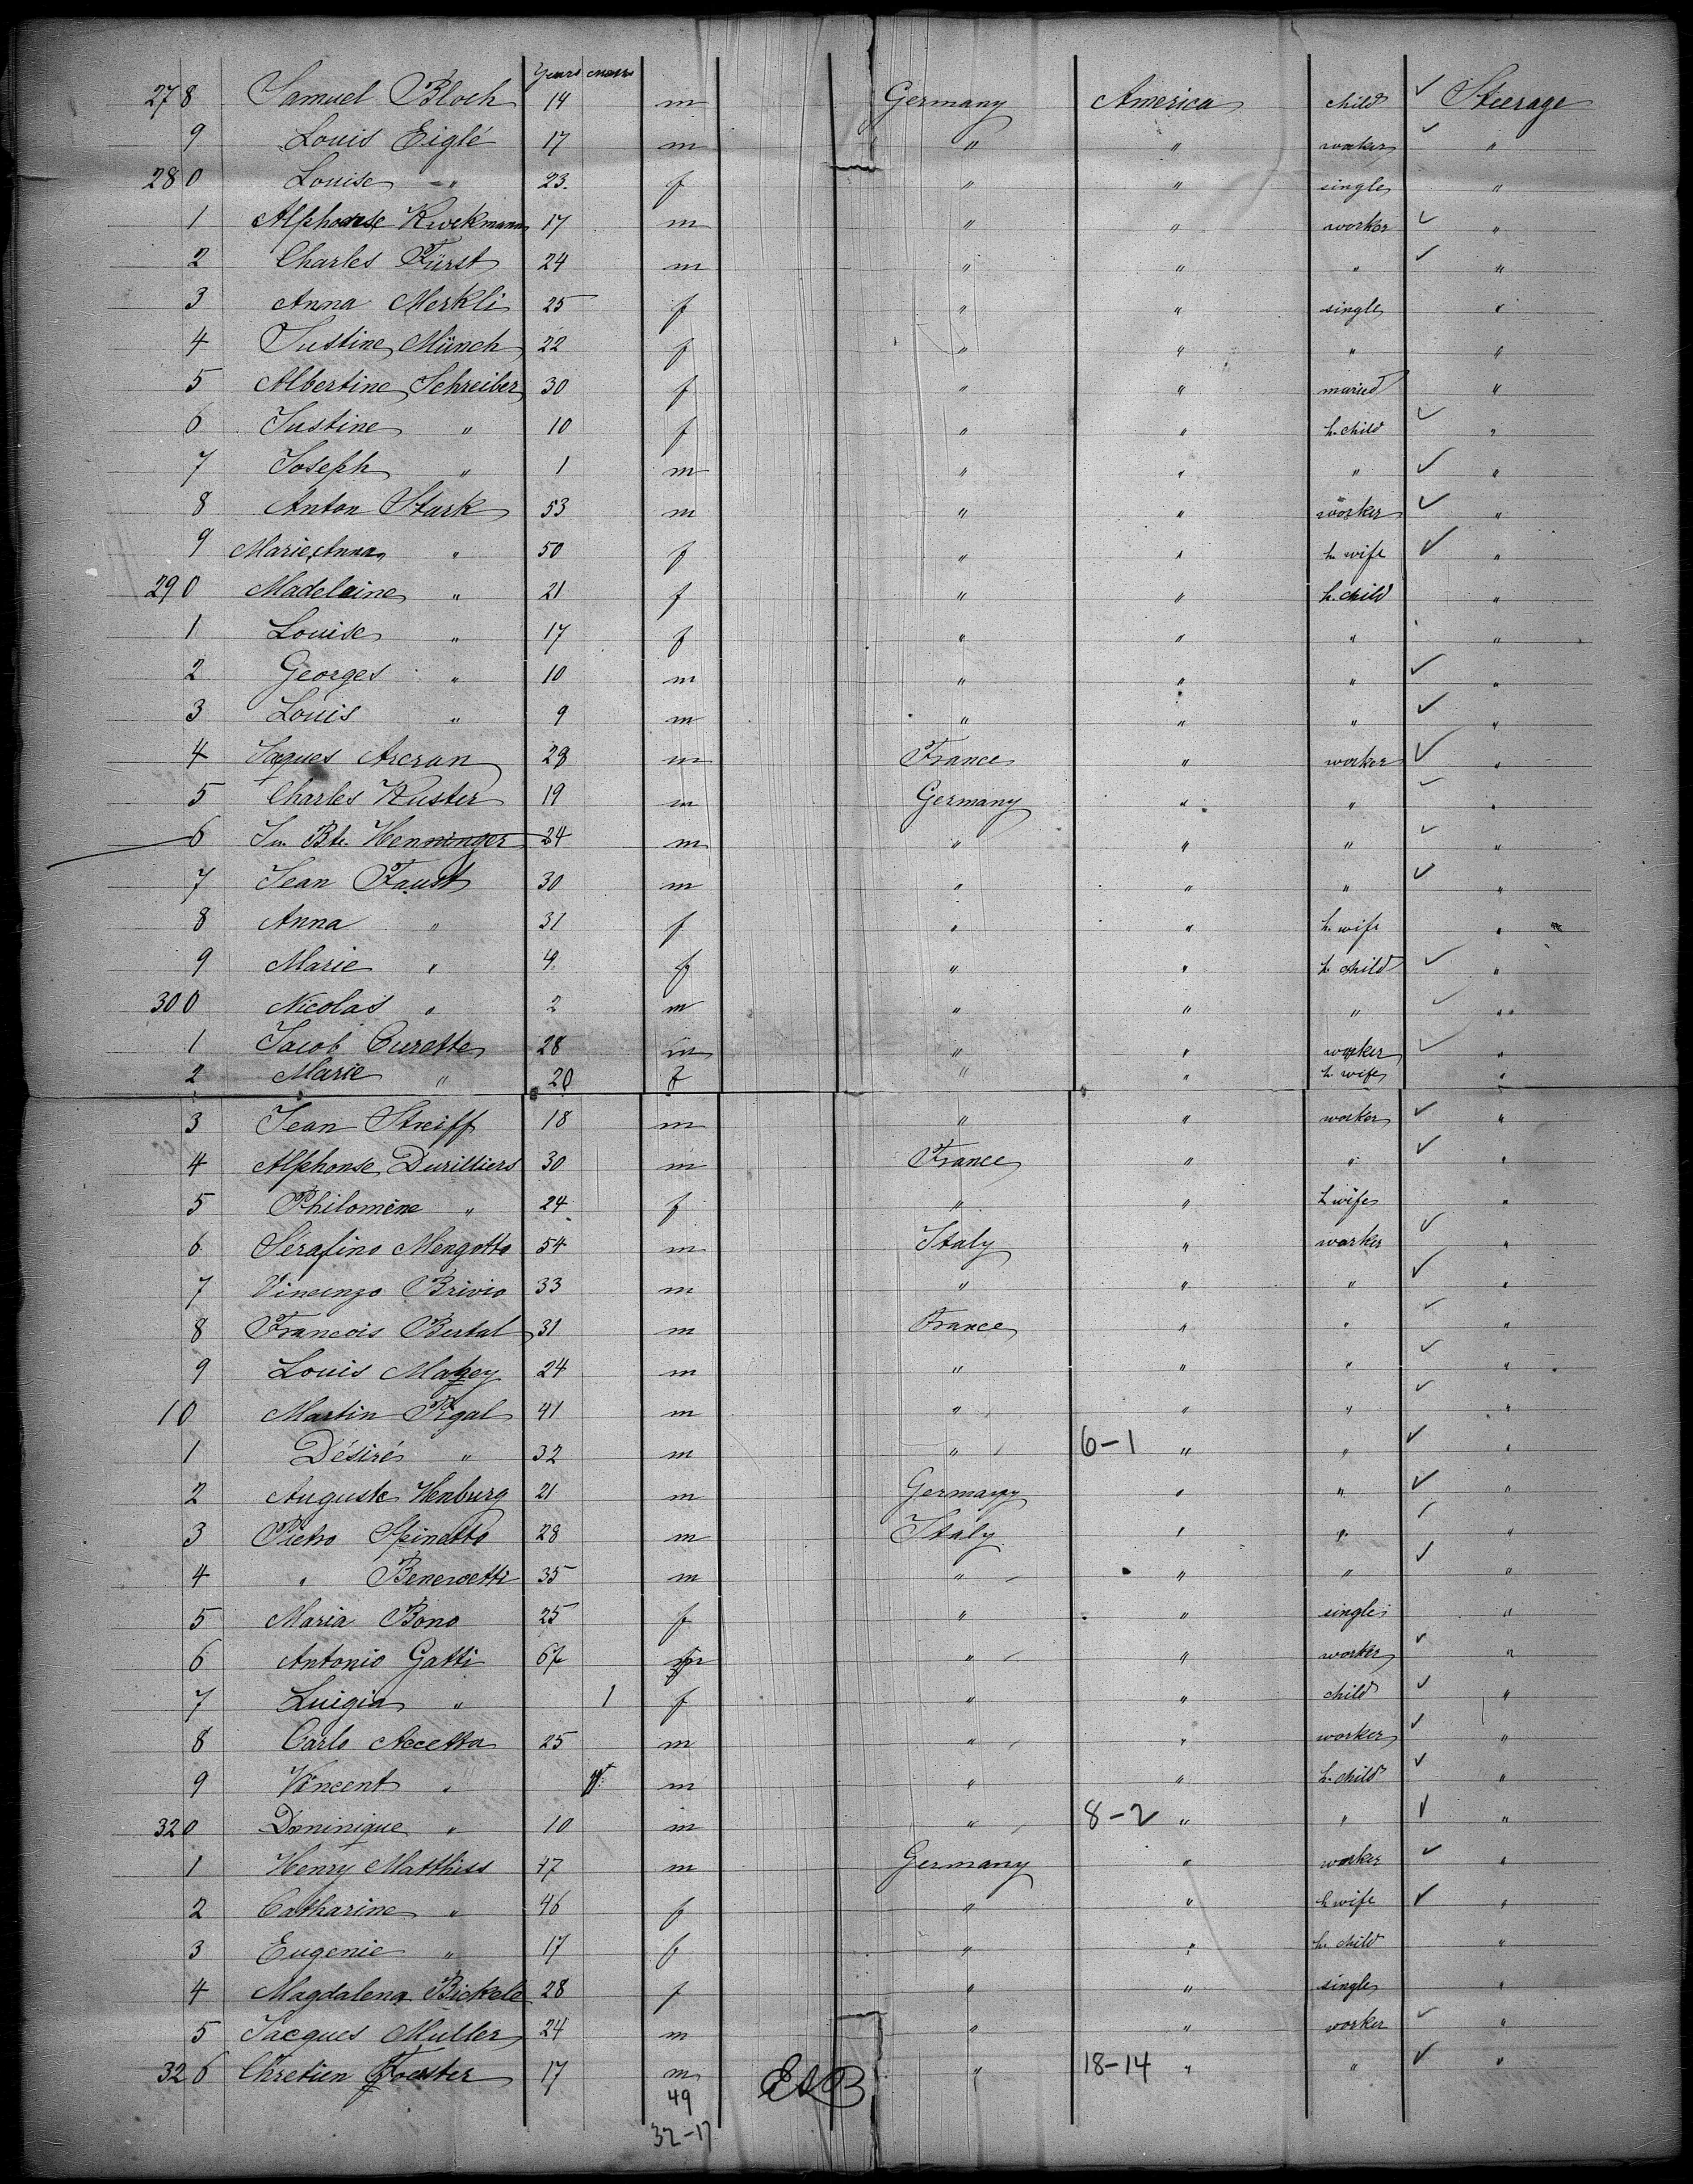 Years
278 Samuel Bloch 14 m Germany America child ✓ Steerage
9 Louis Eiglé 17 m " " worker ✓ "
280 Louise " 23. f " " single "
1 Alphonse 17 m " " worker ✓ "
2 Charles Fürst 24 m " " " ✓ "
3 Anna Merkli 25 f " " single "
4 Justine Münch 22 f " " " "
5 Albertine Schreiber 30 f " " maried "
6 Justine " 10 f " " h. child ✓ "
7 Joseph " 1 m " " " ✓ "
8 Anton Stark 53 m " " worker ✓ "
9 Marie Anna " 50 f " " h. wife ✓ "
290 Madelaine " 21 f " " h. child "
1 Louise " 17 f " " " "
2 Georges " 10 m " " " ✓ "
3 Louis " 9 m " " " ✓ "
4 Jaques Arcran m France " worker ✓ "
5 Charles Kuster 19 m Germany " " ✓ "
6 Jn. Bte. Henninger 24 m " " " ✓ "
7 Jean Faust 30 m " " " ✓ "
8 Anna " 31 f " " h. wife "
9 Marie " 4 f " " h. child ✓ "
300 Nicolas " 2 m " " " ✓ "
1 Jacob Curette 28 m " " worker ✓ "
2 Marie " 20 f " " h. wife "
3 Jean Streiff 18 m " " worker ✓ "
4 Alphonse Durilliers 30 m France " " ✓ "
5 Philomène " 24 f " " h wife "
6 Serafino Mengotto 54 m Italy " worker ✓ "
7 Vincenzo Brivio 33 m " " " ✓ "
8 Francois Bertal 31 m France " " ✓ "
9 Louis 24 m " " " ✓ "
10 Martin Pigal 41 m " " " ✓ "
1 Désiré " 32 m " 6-1 " " ✓ "
2 Auguste Henburg 21 m Germany " " ✓ "
3 Pietro Spinatto 28 m Italy " " ✓ "
4 " 35 m " " " ✓ "
5 Maria Bono 25 f " " single "
6 Antonio Gatti " " worker ✓ "
7 Luigia " 1 f " " child ✓ "
8 Carlo Accetta 25 m " " worker ✓ "
9 Vincent " m " " h. child ✓ "
320 Dominique " 10 m " 8-2 " " ✓ "
1 Henry Matthiss 47 m Germany " worker ✓ "
2 Catharine " 46 f " " h wife ✓ "
3 Eugenie " 17 f " " h. child "
4 Magdalena Bickele 28 f " " single "
5 Jacques Muller 24 m " " worker ✓ "
326 Chretien 17 m " 18-14 " " ✓ "
49
32-17